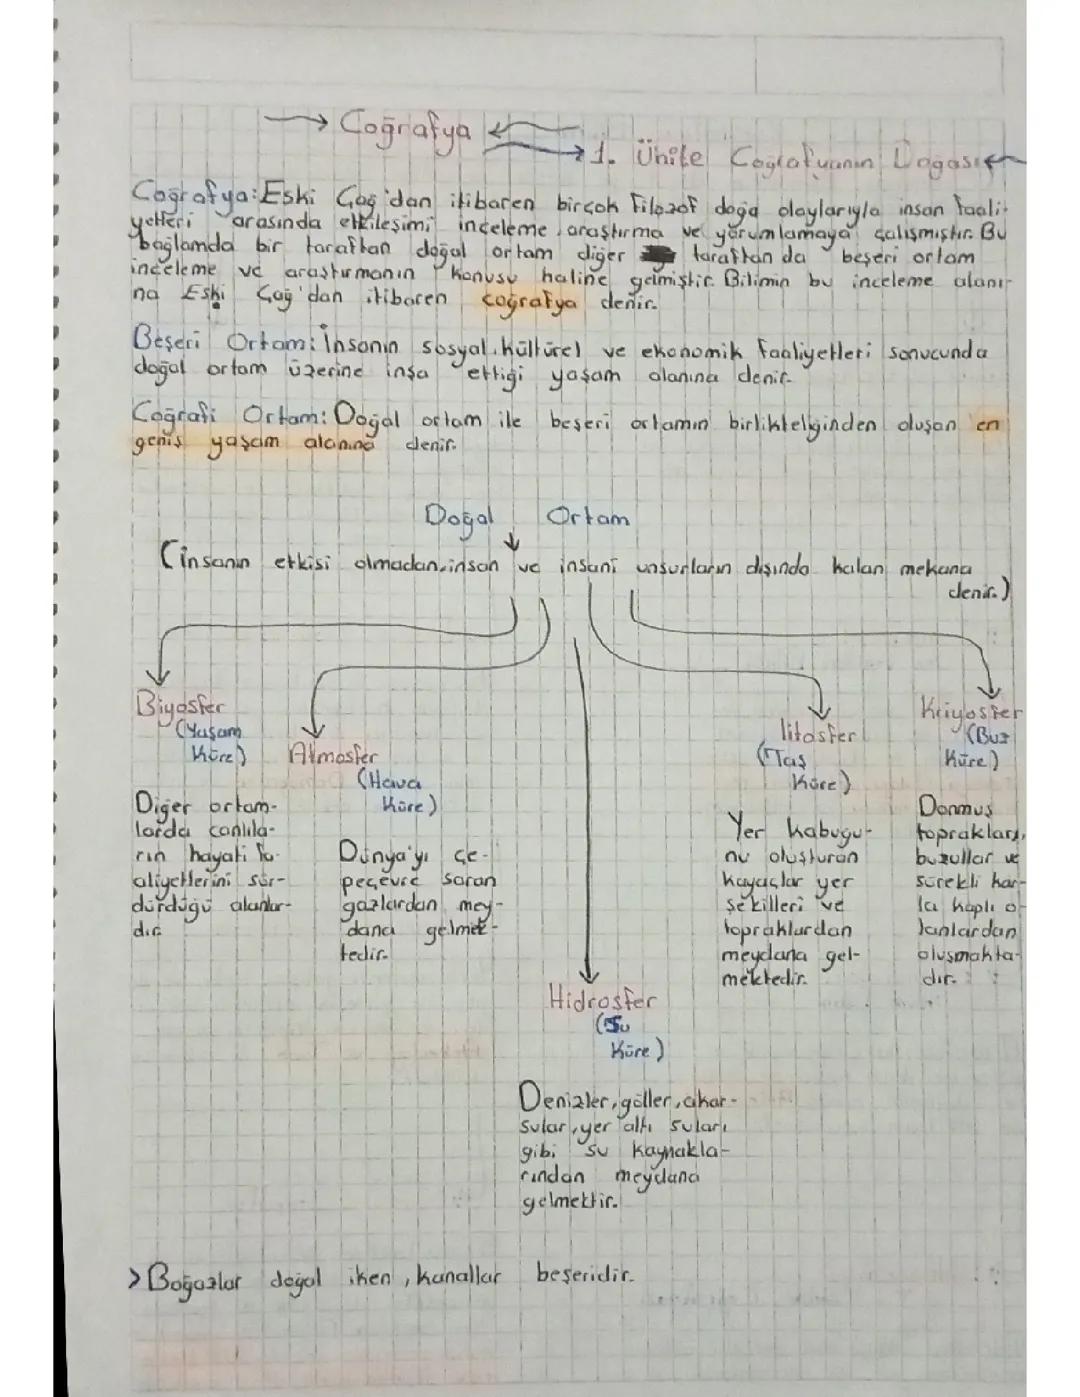 Coğrafya
1. Ünite Coğrafyanın Doğası
Coğrafya: Eski Çağ'dan itibaren birçok filozof doğa olaylarıyla insan faali-
yetleri arasında etkileşimi inceleme, araştırma ve yorumlamaya çalışmıştır. Bu
bağlamda bir taraftan doğal ortam diğer taraftan da beşeri ortam
inceleme ve araştırmanın konusu haline gelmiştir. Bilimin bu inceleme alanı-
na Eski Çağ'dan itibaren coğrafya denir.
Beşeri Ortam: İnsanın sosyal, kültürel ve ekonomik faaliyetleri sonucunda
doğal ortam üzerine inşa ettiği yaşam alanına denir.
Coğrafi Ortam: Doğal ortam ile beşeri ortamın birlikteliğinden oluşan en
geniş yaşam alanına denir.
Doğal Ortam
(İnsanın etkisi olmadan, insan ve insani unsurların dışında kalan mekana
denir.)
Biyosfer
(Yaşam
Küre)
Diğer ortam-
larda canlıla-
rın hayati fa-
aliyetlerini sür-
dürdüğü alanlar-
dır.
Atmosfer
(Hava
Küre)
Dünya'yı çe-
peçevre saran
gazlardan mey-
dana gelmek-
tedir.
Hidrosfer
(Su
Küre)
Denizler, göller, akar-
sular, yer altı suları
gibi su kaynakla-
rından meydana
gelmektir.
litosfer
(Taş
Küre)
Yer kabuğu-
nu oluşturan
kayaçlar yer
şekilleri ve
topraklardan
meydana gel-
mektedir.
Kriyosfer
(Buz
Küre)
Donmuş
toprakları,
buzullar ve
sürekli kar-
la kaplı o-
lanlardan
oluşmakta-
dır.
> Boğazlar doğal iken, kanallar beşeridir.